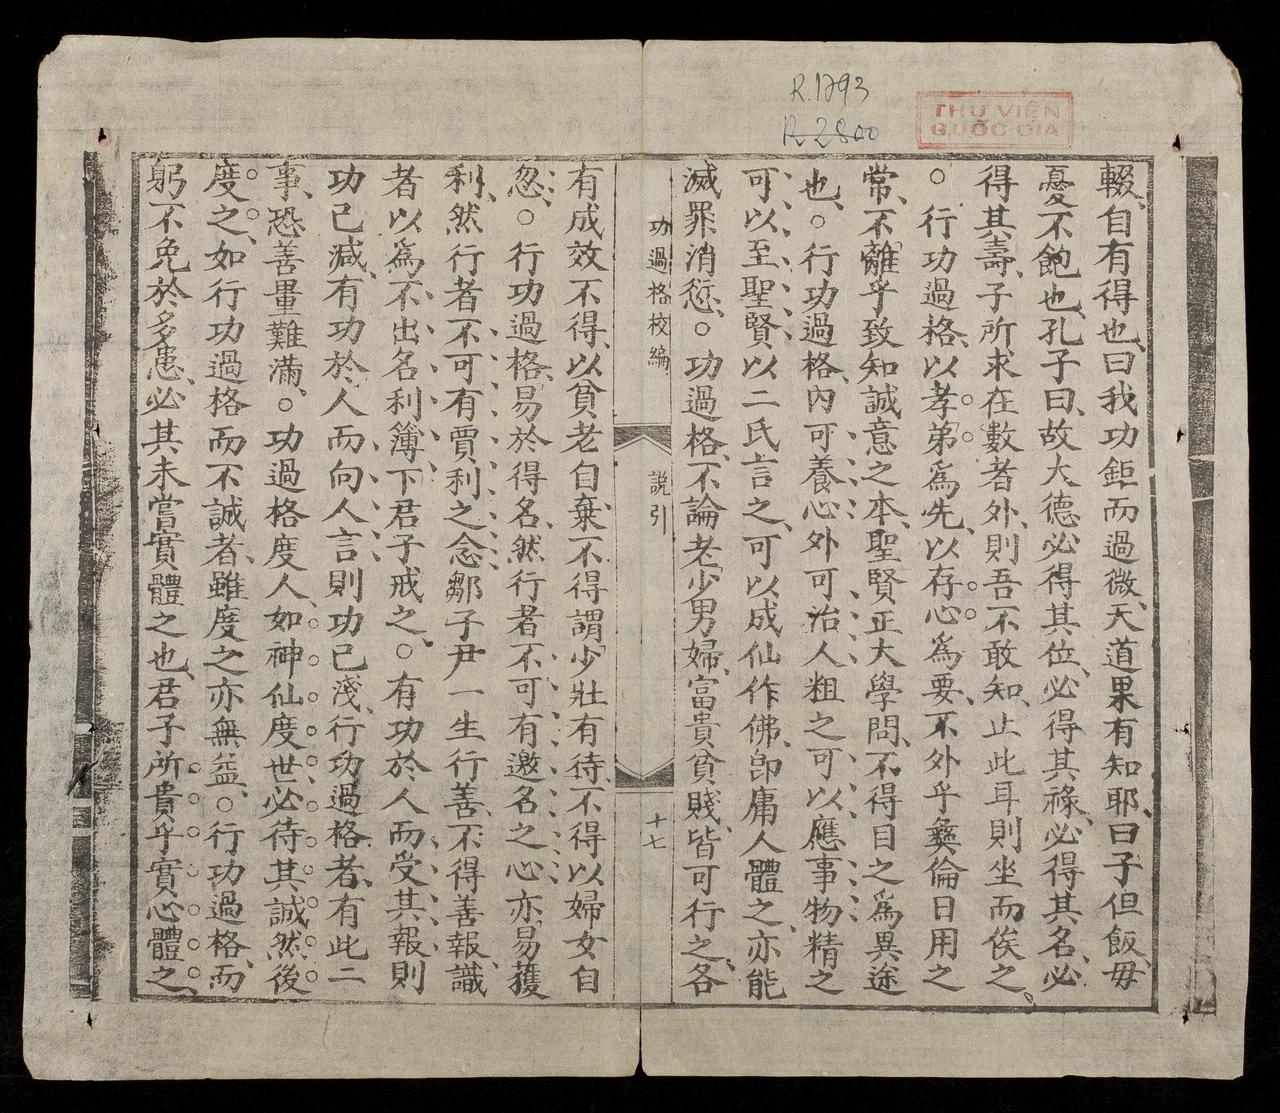 R.1793
R 2800
THƯ VIỆN
QUỐC GIA
輟、自有得也、曰我功鉅而過微、天道果有知耶、曰子但飯毋
憂不飽也、孔子曰、故大德必得其位、必得其祿、必得其名、必
得其壽、子所求在數者外、則吾不敢知、止此耳則坐而俟之。
○行功過格、以孝弟爲先、以存心爲要、不外乎彝倫日用之
常、不離乎致知誠意之本、聖賢正大學問、不得目之爲異途
也、○行功過格、內可養心外可治人粗之可以應事物精之
可以至聖賢、以二氏言之、可以成仙作佛、卽庸人體之、亦能
滅罪消愆、○功過格、不論老少男婦、富貴貧賤、皆可行之、各
功過格校編
說引
十七
有成效不得、以貧老自棄、不得謂少壯有待、不得以婦女自
忽、○行功過格、易於得名、然行者不可有邀名之心、亦易獲
利、然行者不可有賈利之念鄒子尹一生行善、不得善報、識
者以爲不出名利簿下君子戒之、○有功於人而受其報則
功已減、有功於人而向人言則功已淺、行功過格者、有此二
事、恐善量難滿、○功過格度人、如神仙度世必待其誠然後
度之、如行功過格而不誠者、雖度之亦無益、○行功過格、而
躬不免於多愚、必其未嘗實體之也、君子所貴乎實心體之、